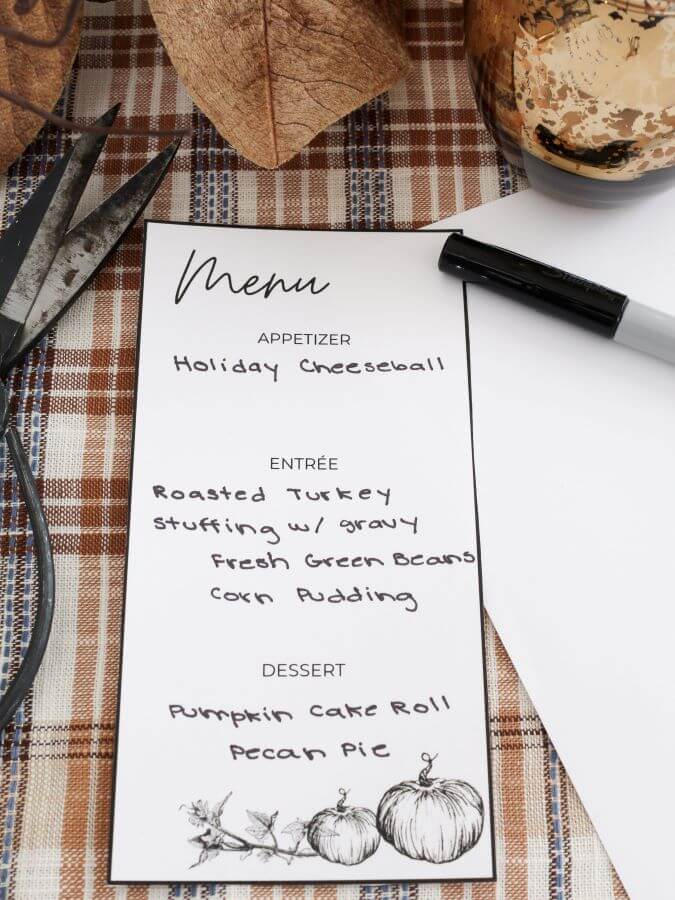 Menu
APPETIZER
Holiday Cheeseball
ENTRÉE
Roasted Turkey
Stuffing w/ gravy
Fresh Green Beans
Corn Pudding
DESSERT
Pumpkin Cake Roll
Pecan Pie